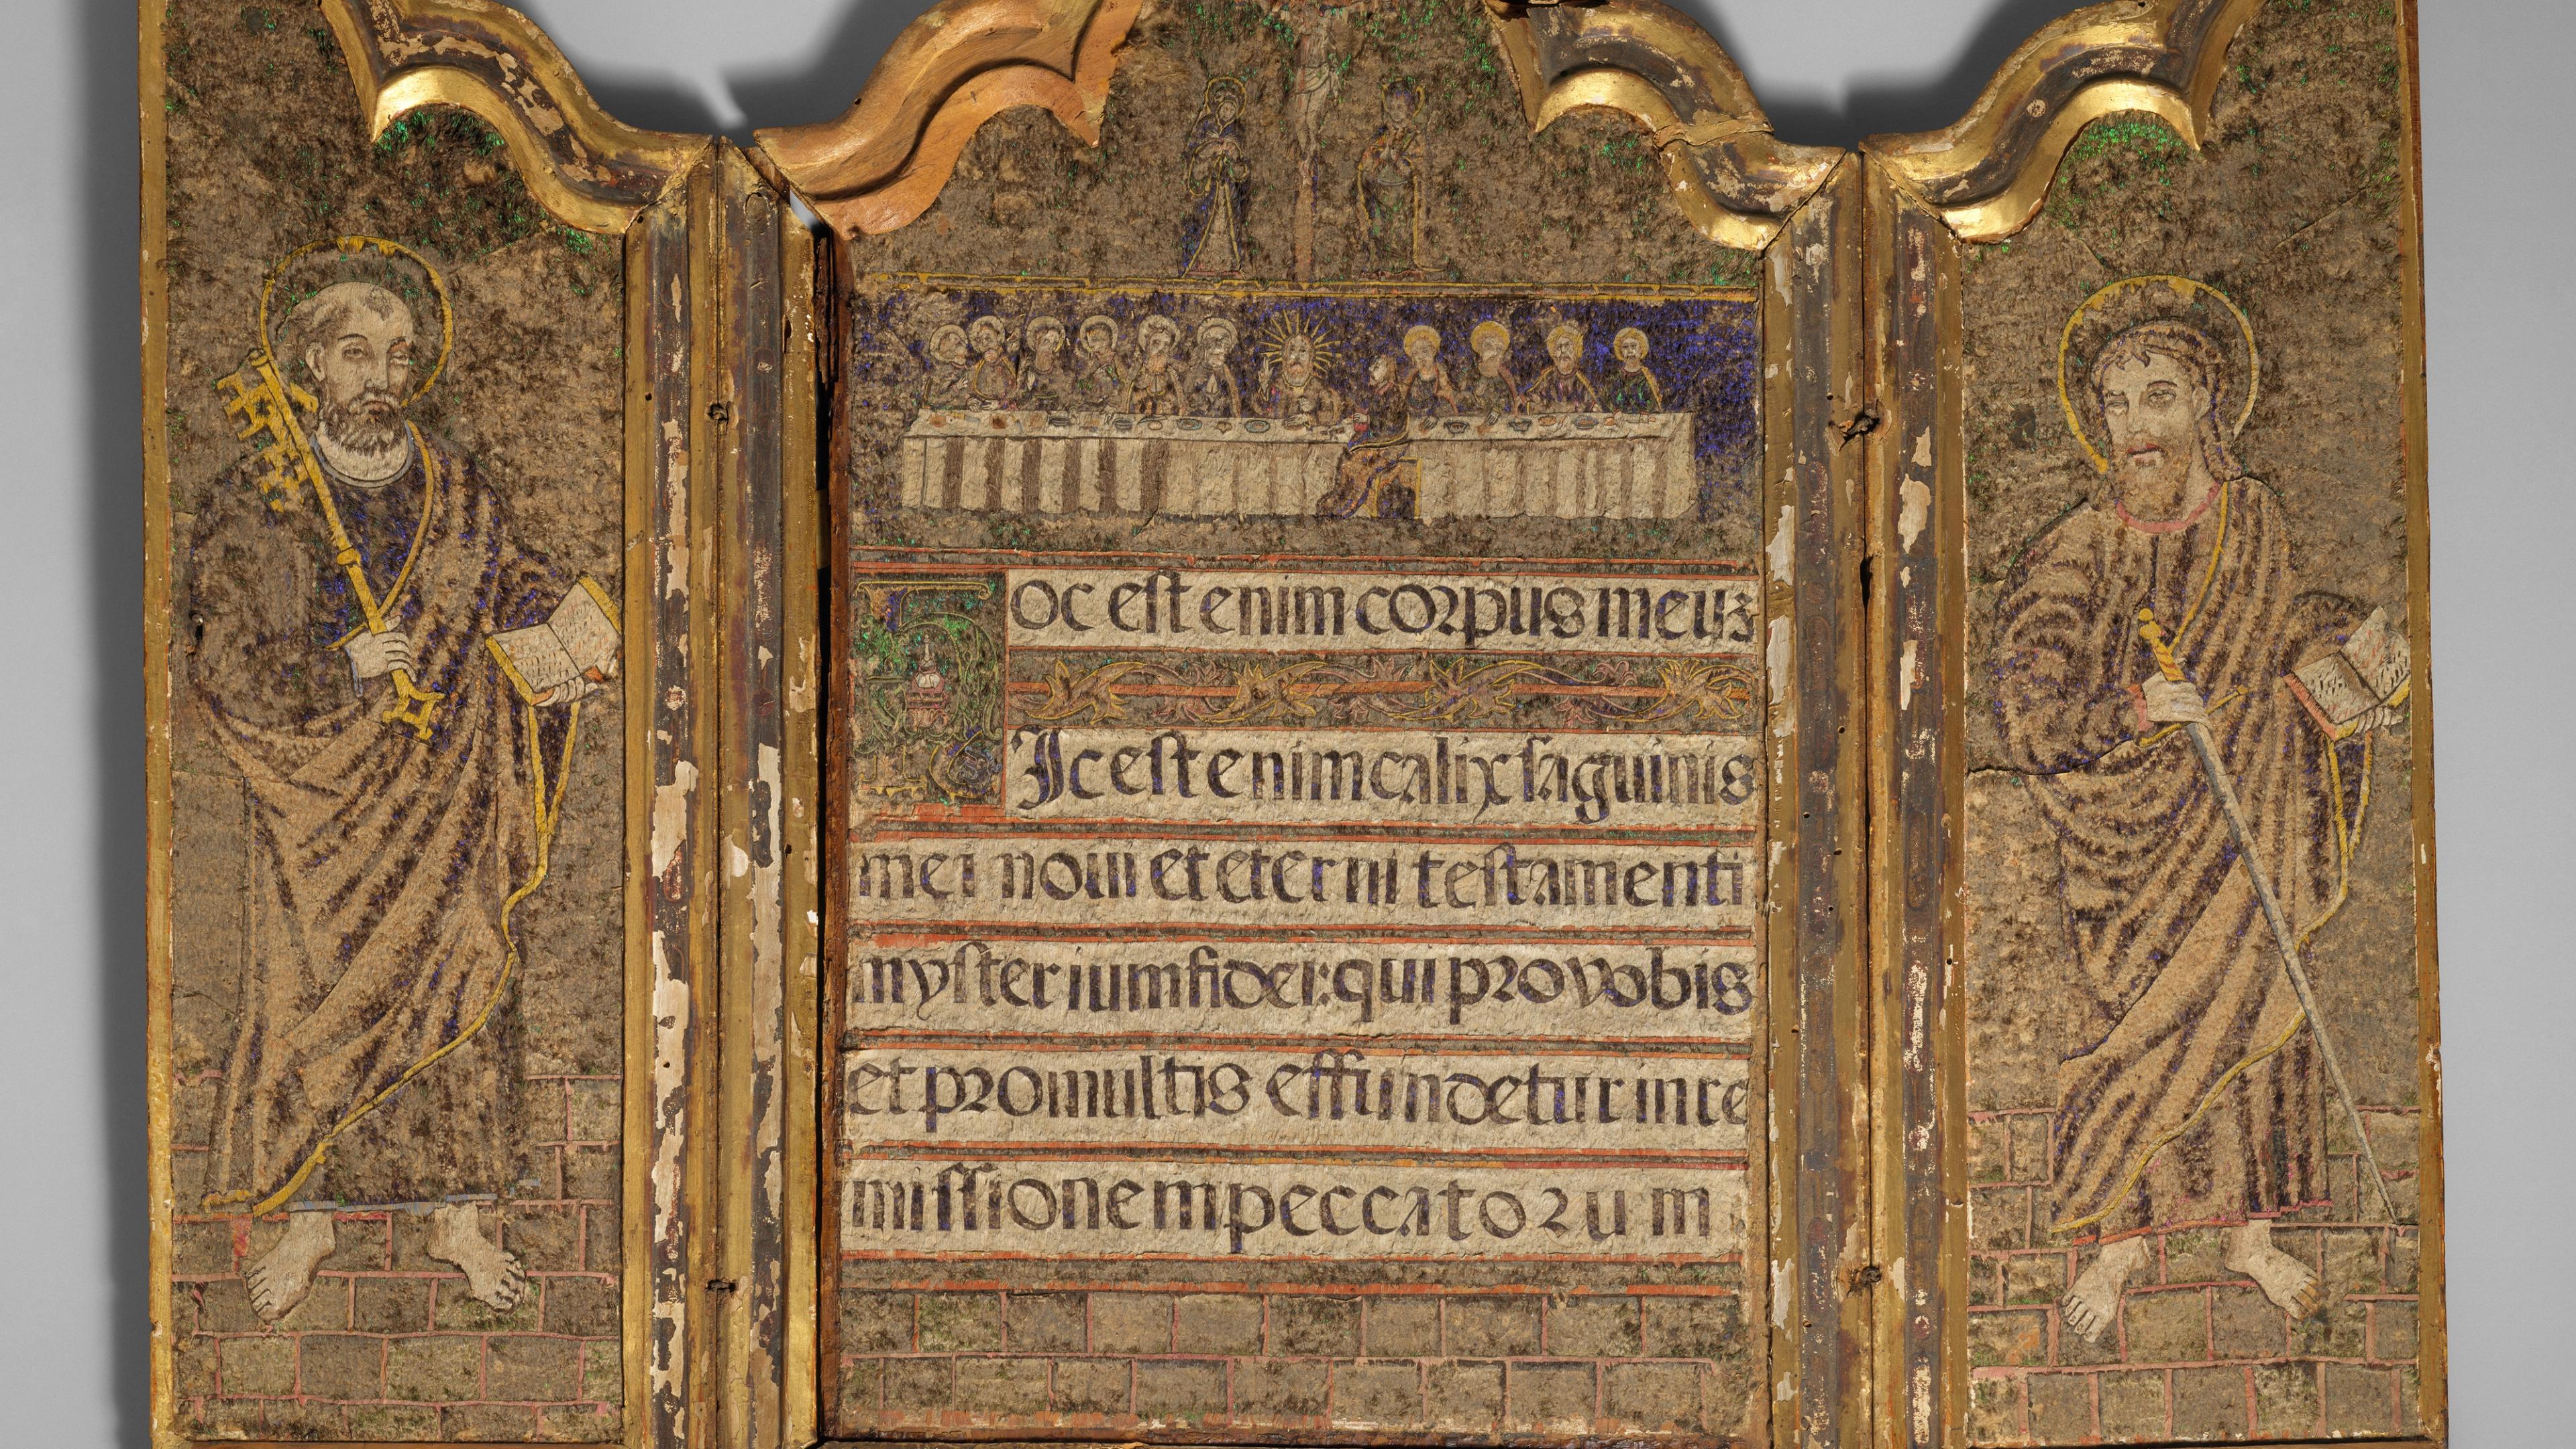 Hoc est enim corpus meuz
Hic est enim calix saguinis
mei noui et eterni testamenti
mysterium fidei: qui pro vobis
et pro multis effundetur in re
missionem peccatorum